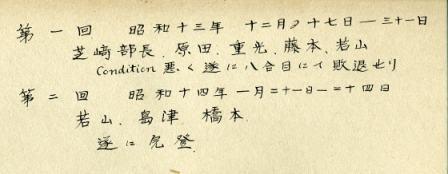 第一回 昭和十三年 十二月十七日—三十一日
芝崎部長、原田、重光、藤本、若山
Condition 悪く遂に八合目にて敗退セリ
第二回 昭和十四年一月二十一日—二十四日
若山、島津、橋本
遂に完登